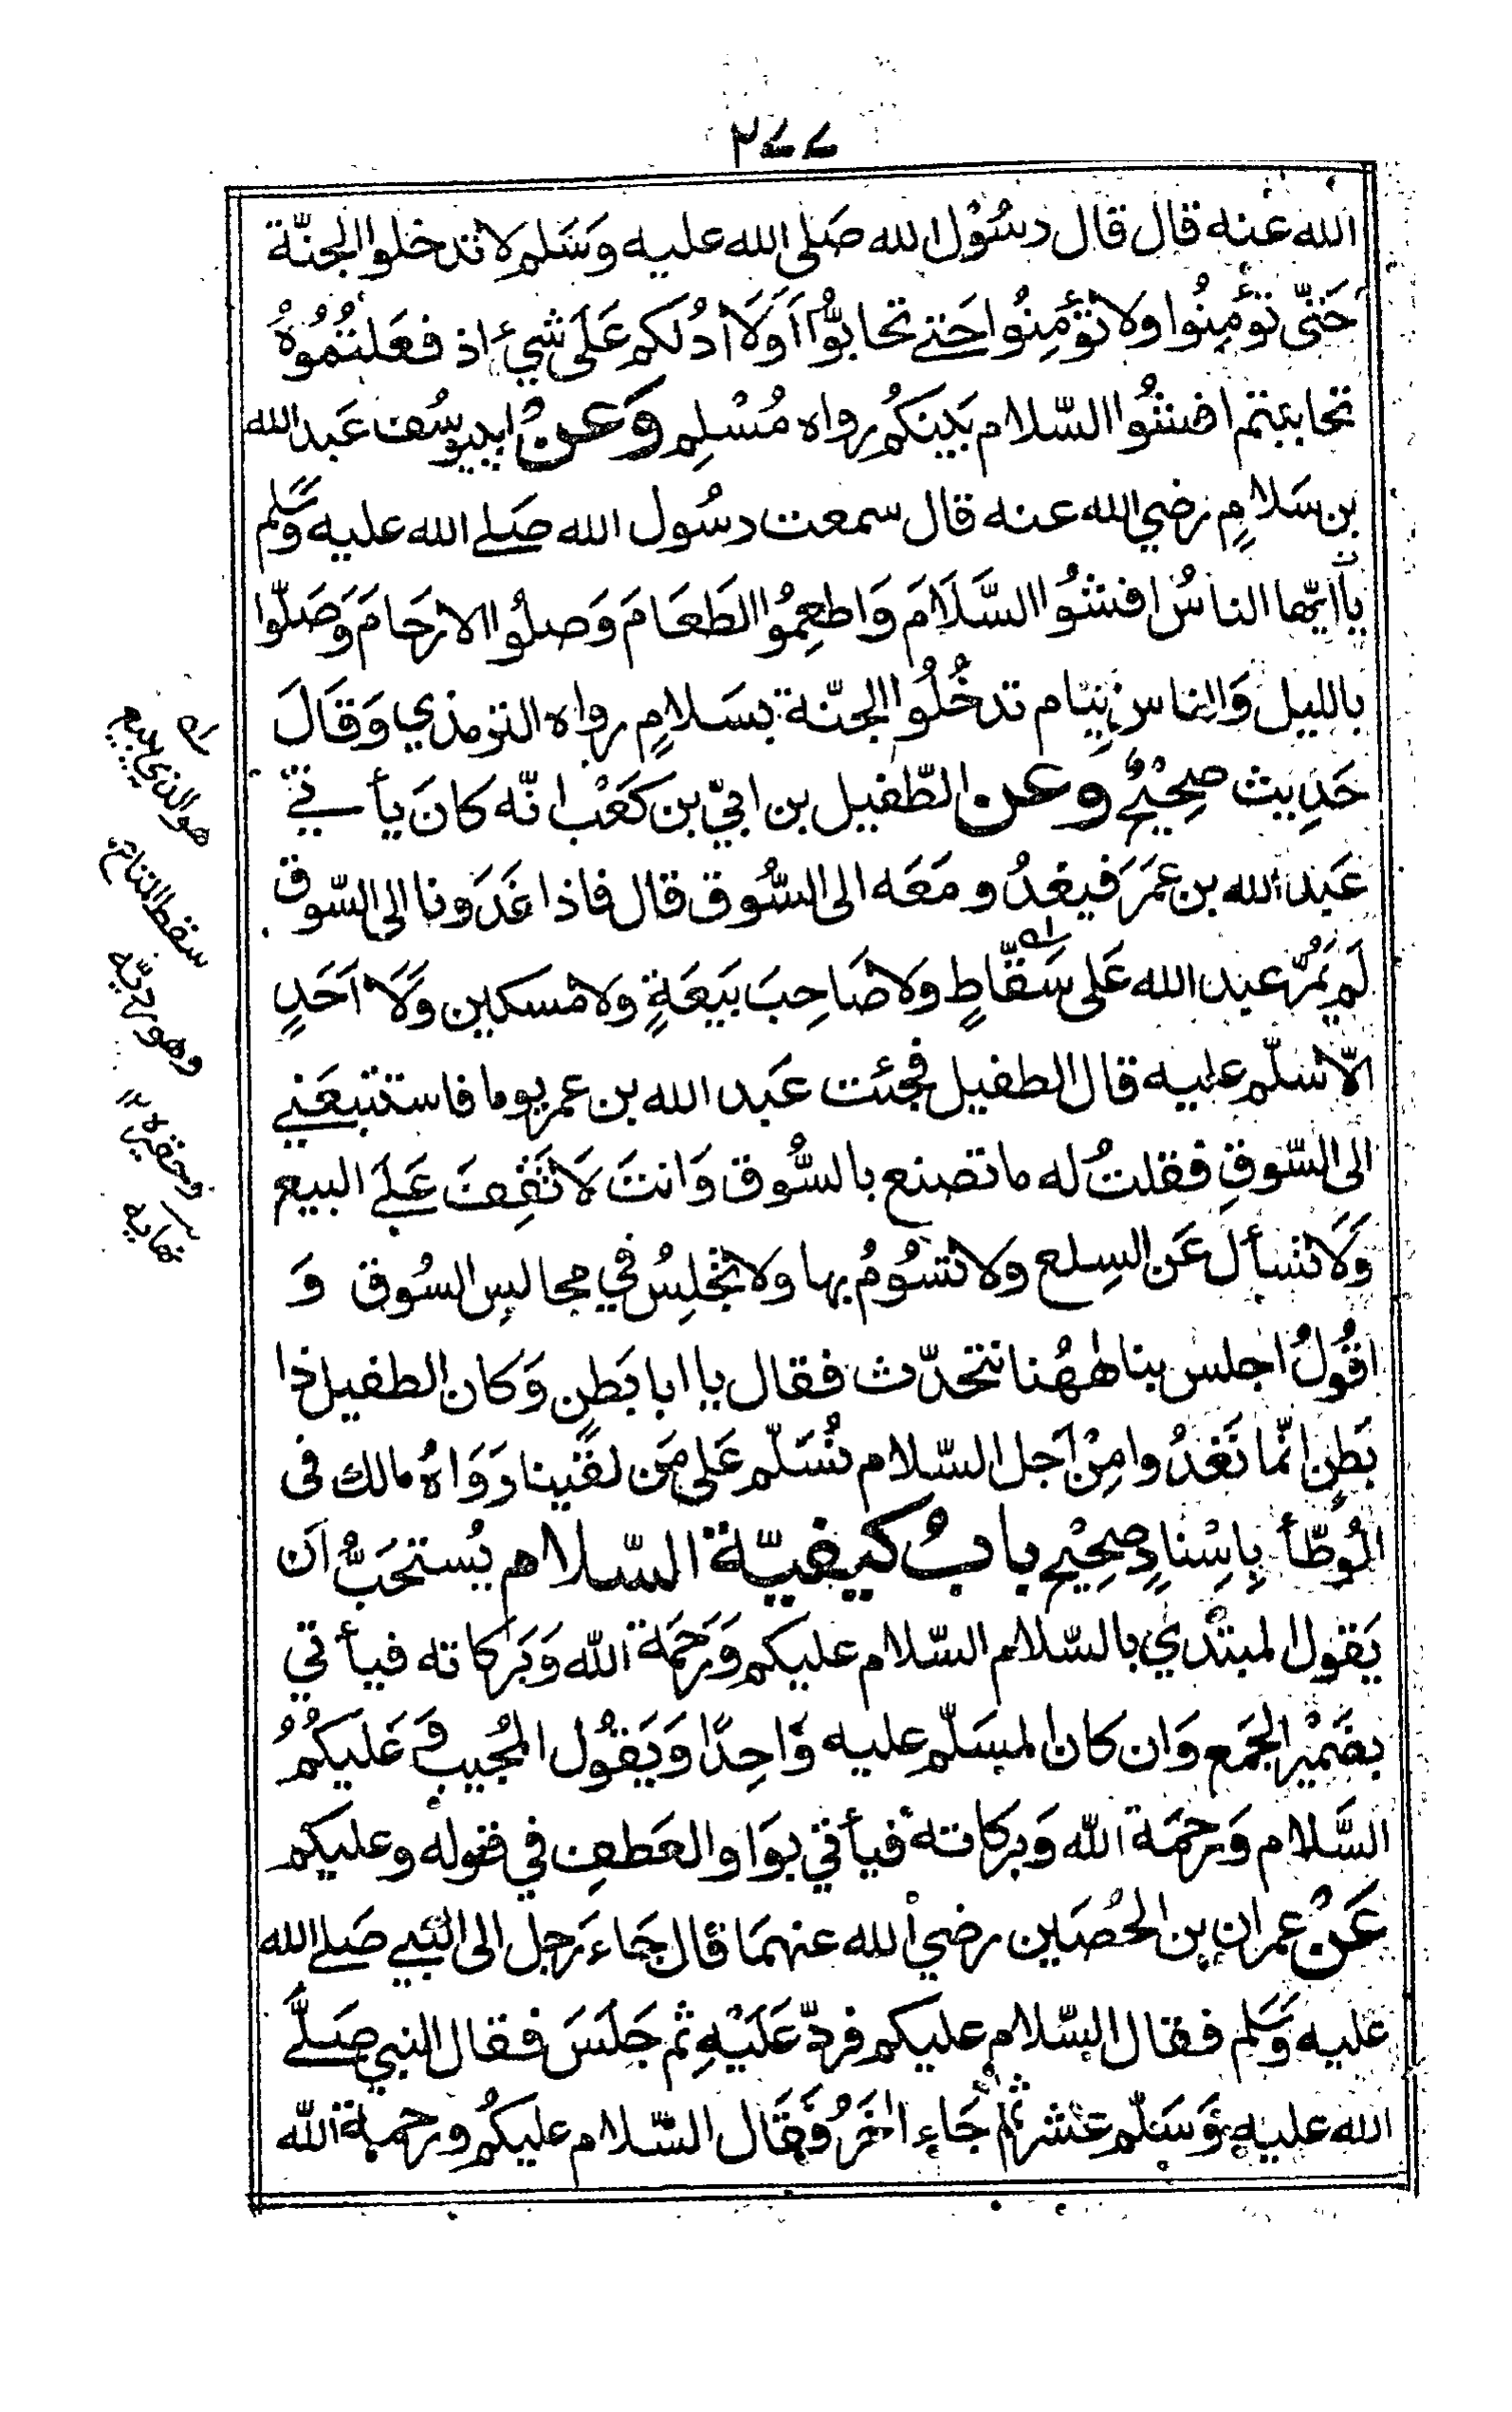 ٢٧٧
الله عنه قال قال رسُوْل الله صَلى الله عليه وَسَلم لا تدخلوا الجنّة
حَتّى تؤمِنُوا ولا تؤمِنُوا حَتے تحابوُّا اَوَلَا اَدُلكم عَلَى شيء اذ فعَلتُموُهُ
تحاببتم افشُوا السّلام بَينكُم رواه مُسْلِم وَعَنْ ابي يوسُف عَبد الله
بن سَلامٍ رضي الله عنه قال سمعت رسُول الله صَلے الله عليه وَسَّلم
يا اَيّها الناسُ افشوُا السَّلَامَ وَاطعِمُوا الطَعَامَ وَصلُوا الارحَامَ وَصَلّوا
بالليل وَالناس نِيَام تدخُلُوا الجنّة بسَلامٍ رواه الترمذي وَقَالَ
حَدِيث صَحِيْحٌ وَعن الطّفيل بن ابيّ بن كعَبْ انّه كانَ يأتي
عَبد الله بن عمَرَ فيغدُو مَعَه الى السُّوق قال فاذا غَدَونا الى السّوق
لَم يَمُرّ عبد الله عَلى سَقّاطٍ ولا صَاحِبَ بَيعَةٍ ولا مسكين وَلَا اَحَدٍ
الّا سَلّم عليه قال الطفيل فجئت عَبد الله بن عمر يوما فاستتبعَني
الى السّوقِ فقلتُ له ما تصنع بالسُّوق وَانتَ لَا تَقِفَ عَلَے البيع
وَلَا تسأل عَن السِلع ولا تسُومُ بها ولا تجْلِسُ في مجالِس السُوق وَ
اقُولُ اجلس بنا هٰهُنا نتحدّث فقال يا ابا بَطنٍ وَكان الطفيل ذا
بَطنٍ انّما نَغدُوا مِنْ اَجل السّلام نُسَلّم عَلى مَن لقيَنا رَوَاهُ مالك فى
المُوطّأ بِاِسْنادٍ صَحِيْحٍ بابُ كيفيّة السّلام يُستحَبُّ اَن
يَقول المبتدي بالسّلام السّلام عليكم وَرَحمَة الله وَبَركاته فيأتي
بضَميْر الجمَع وَان كان المسَلّم عليه وَاحِدًا وَيَقُول المجُيب وَعَليكُمُ
السَّلام وَرحمَة الله وَبركاته فيأتي بوَاو العَطفِ في قوله وعليكم
عَنْ عمران بن الحُصَين رضي الله عنهمَا قال جَاءَ رَجل الى النبي صَلے الله
عليه وَسَلم فقال السّلام عليكم فردّ عَلَيْهِ ثم جَلَسَ فقال النبي صَلَّے
الله عليه وَسَلّم عَشر ثم جَاء اٰخَرُ فَقَال السّلام عليكُم ورحمة الله
هو الذي يبيع
سقط المتاع
وهو رديّه
وحقيره
نهايه